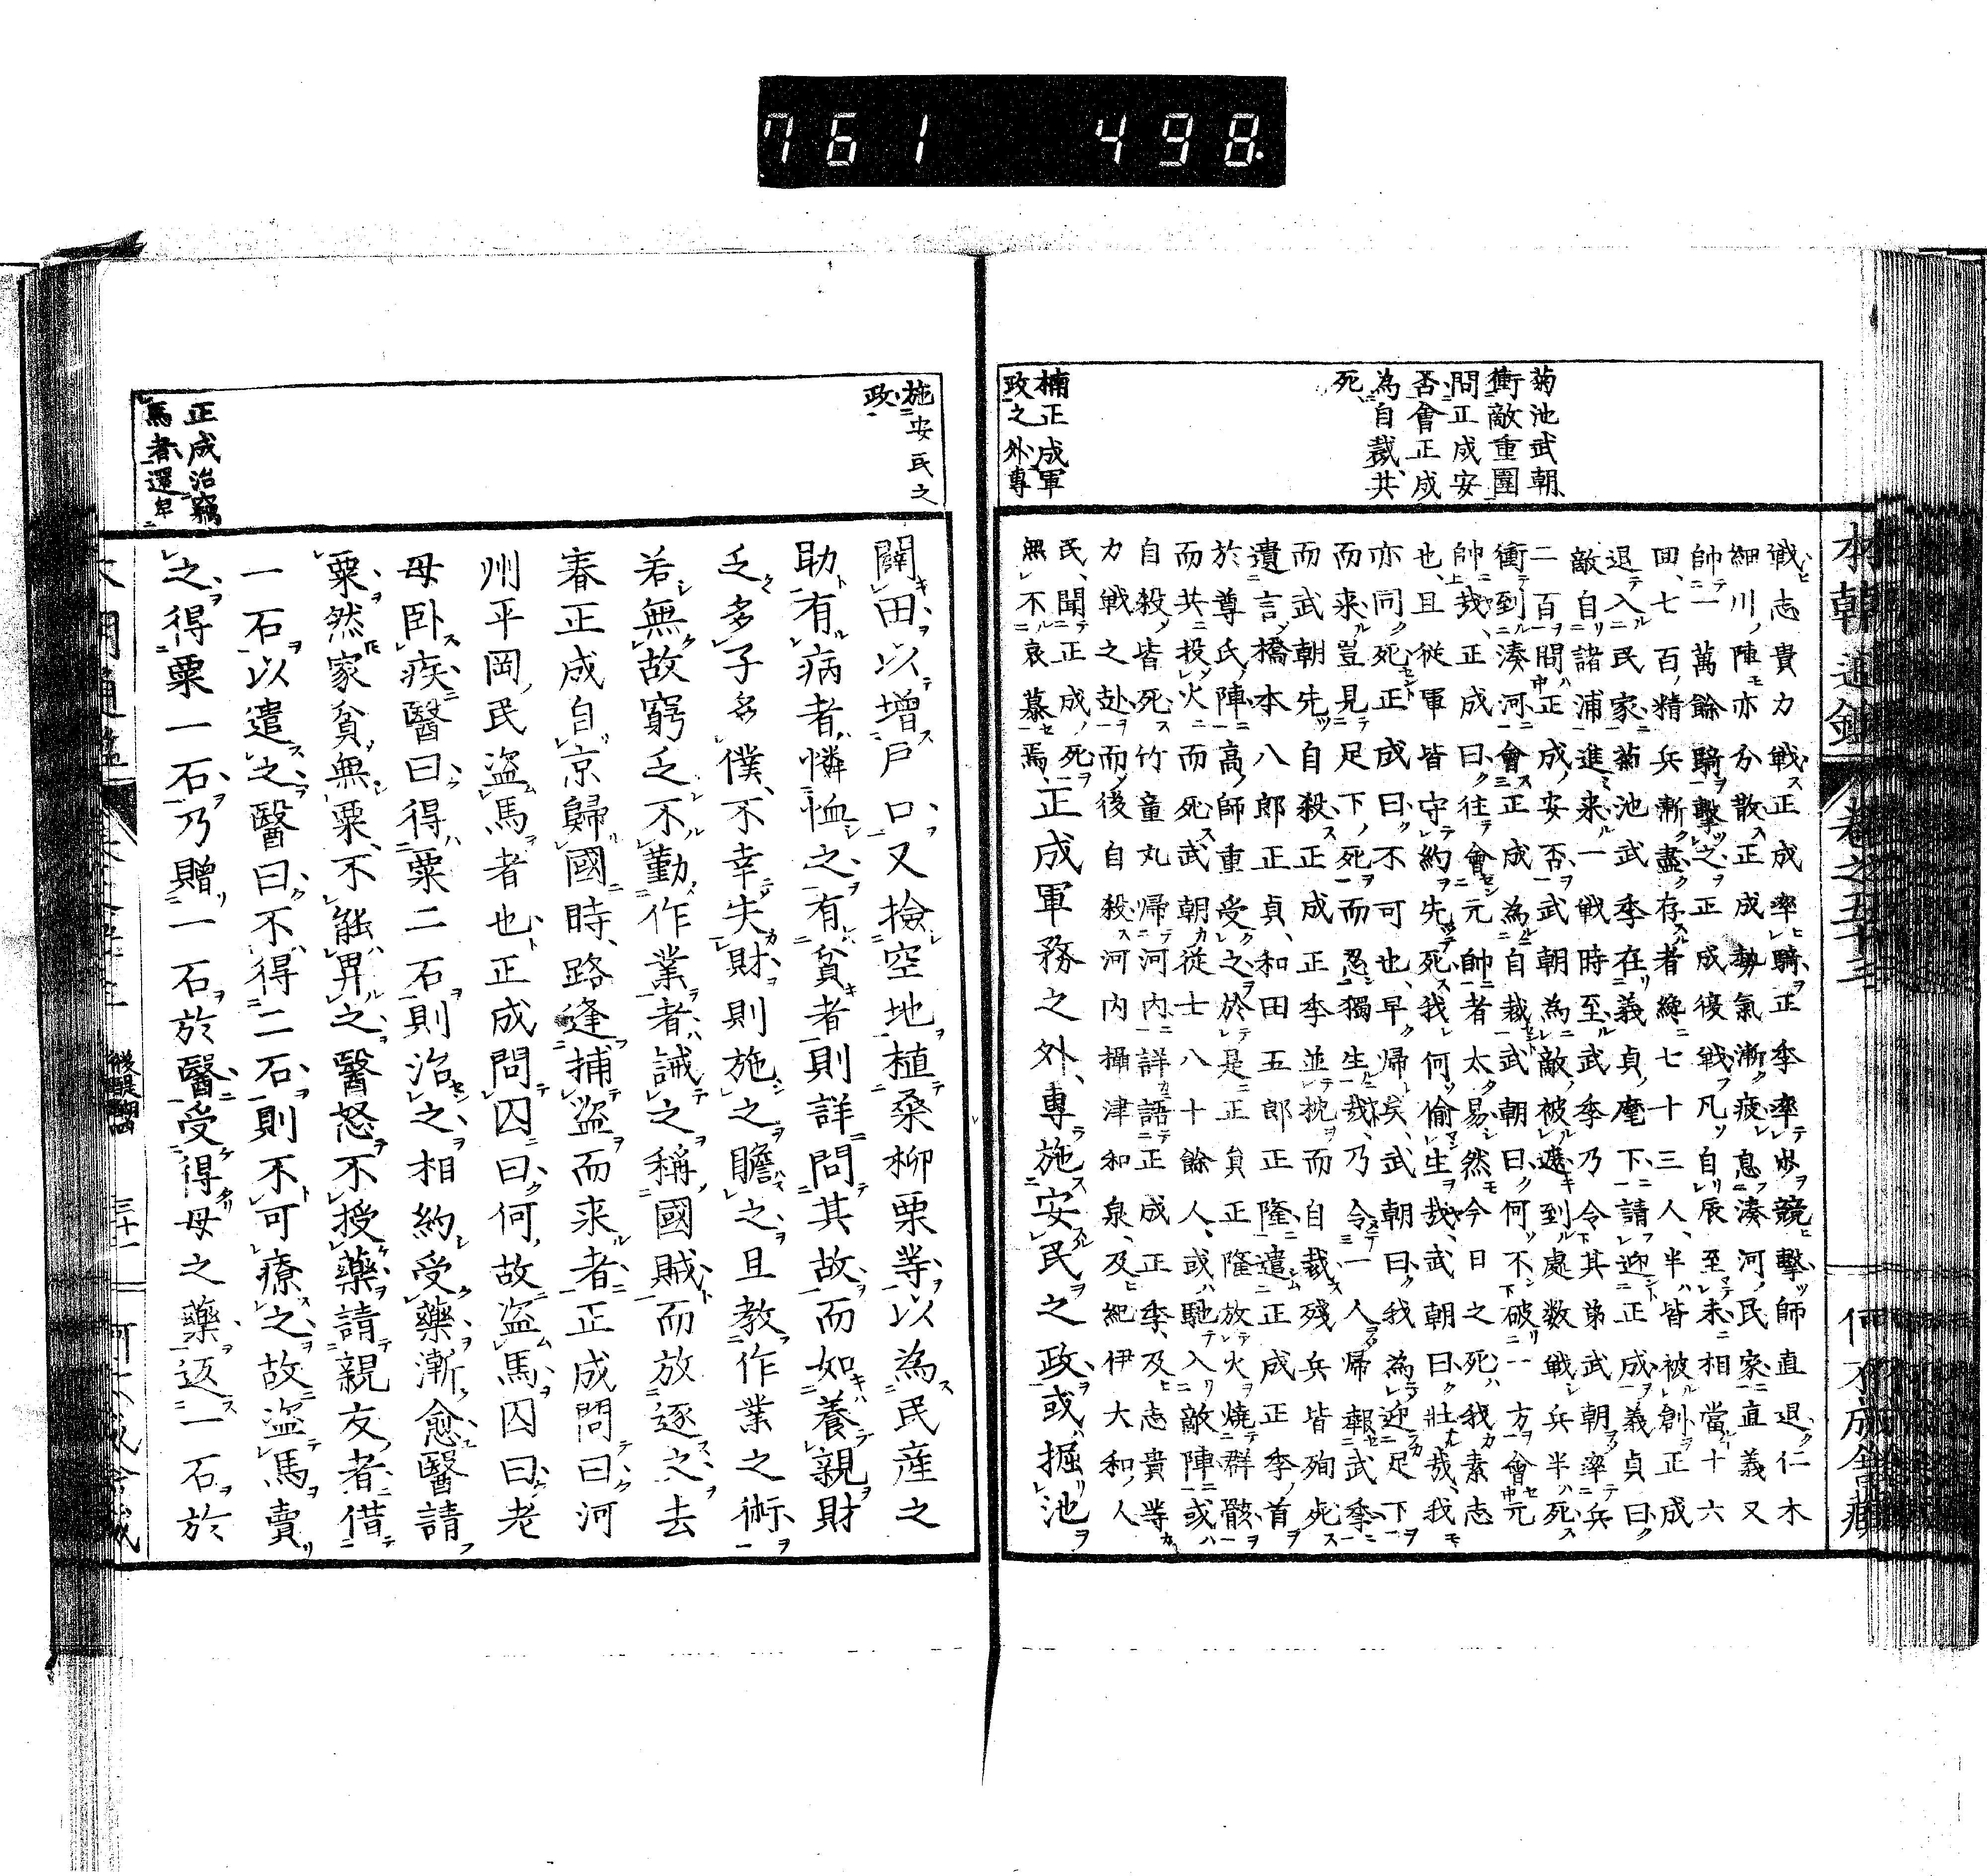 761 498
菊池武朝
衝敵重圍
問正成安
否會正成
為自裁共
死
楠正成軍
政之外專
戰志貴力戰正成率騎正季率歩競擊師直退仁木
細川陣亦分散正成勢氣漸疲息湊河民家直義又
帥一萬餘騎擊之正成復戰凡自辰至未相當十六
回七百精兵漸盡存者纔七十三人半皆被創正成
退入民家菊池武季在義貞麾下請迎正成義貞曰
敵自諸浦進来一戰時至武季乃令其弟武朝率兵
二百問正成安否武朝為敵被遮到處数戰兵半死
衝到湊河會正成為自裁武朝曰何不破一方會元
帥哉正成曰往會元帥者太易然今日之死我素志
也且從軍皆守約先死我何偷生哉武朝曰壮哉我
亦同死正成曰不可也早歸矣武朝曰我為迎足下
而来豈見足下死而忍獨生哉乃令一人歸報武季
而武朝先自殺正成正季並枕而自裁殘兵皆殉死
遺言橋本八郎正貞和田五郎正隆遣正成正季首
於尊氏陣高師重受之於是正貟正隆放火燒群骸
而共投火而死武朝從士八十餘人或馳入敵陣或
自殺皆死竹童丸帰河内詳語正成正季及志貴等
力戦之赴而後自殺河内攝津和泉及紀伊大和人
民聞正成死
無不哀慕焉正成軍務之外專施安民之政或掘池
施安民之
政
正成治竊
馬者還皁
闢田以增戶口又撿空地植桑柳栗等以為民産之
助有病者憐恤之有貧者則詳問其故而如養親財
乏多子多僕不幸失財則施之贍之且教作業之術
若無故窮乏不勤作業者誡之稱國賊而放逐之去
春正成自京歸國時路逢捕盜而来者正成問曰河
州平岡民盜馬者也正成問囚曰何故盜馬囚曰老
母卧疾醫曰得粟二石則治之相約受藥漸愈醫請
粟然家貧無粟不能畀之醫怒不授藥請親友者借
一石以遣之醫曰不得二石則不可療之故盜馬賣
之得粟一石乃贈一石於醫受得母之藥返一石於
後醍醐
三十一